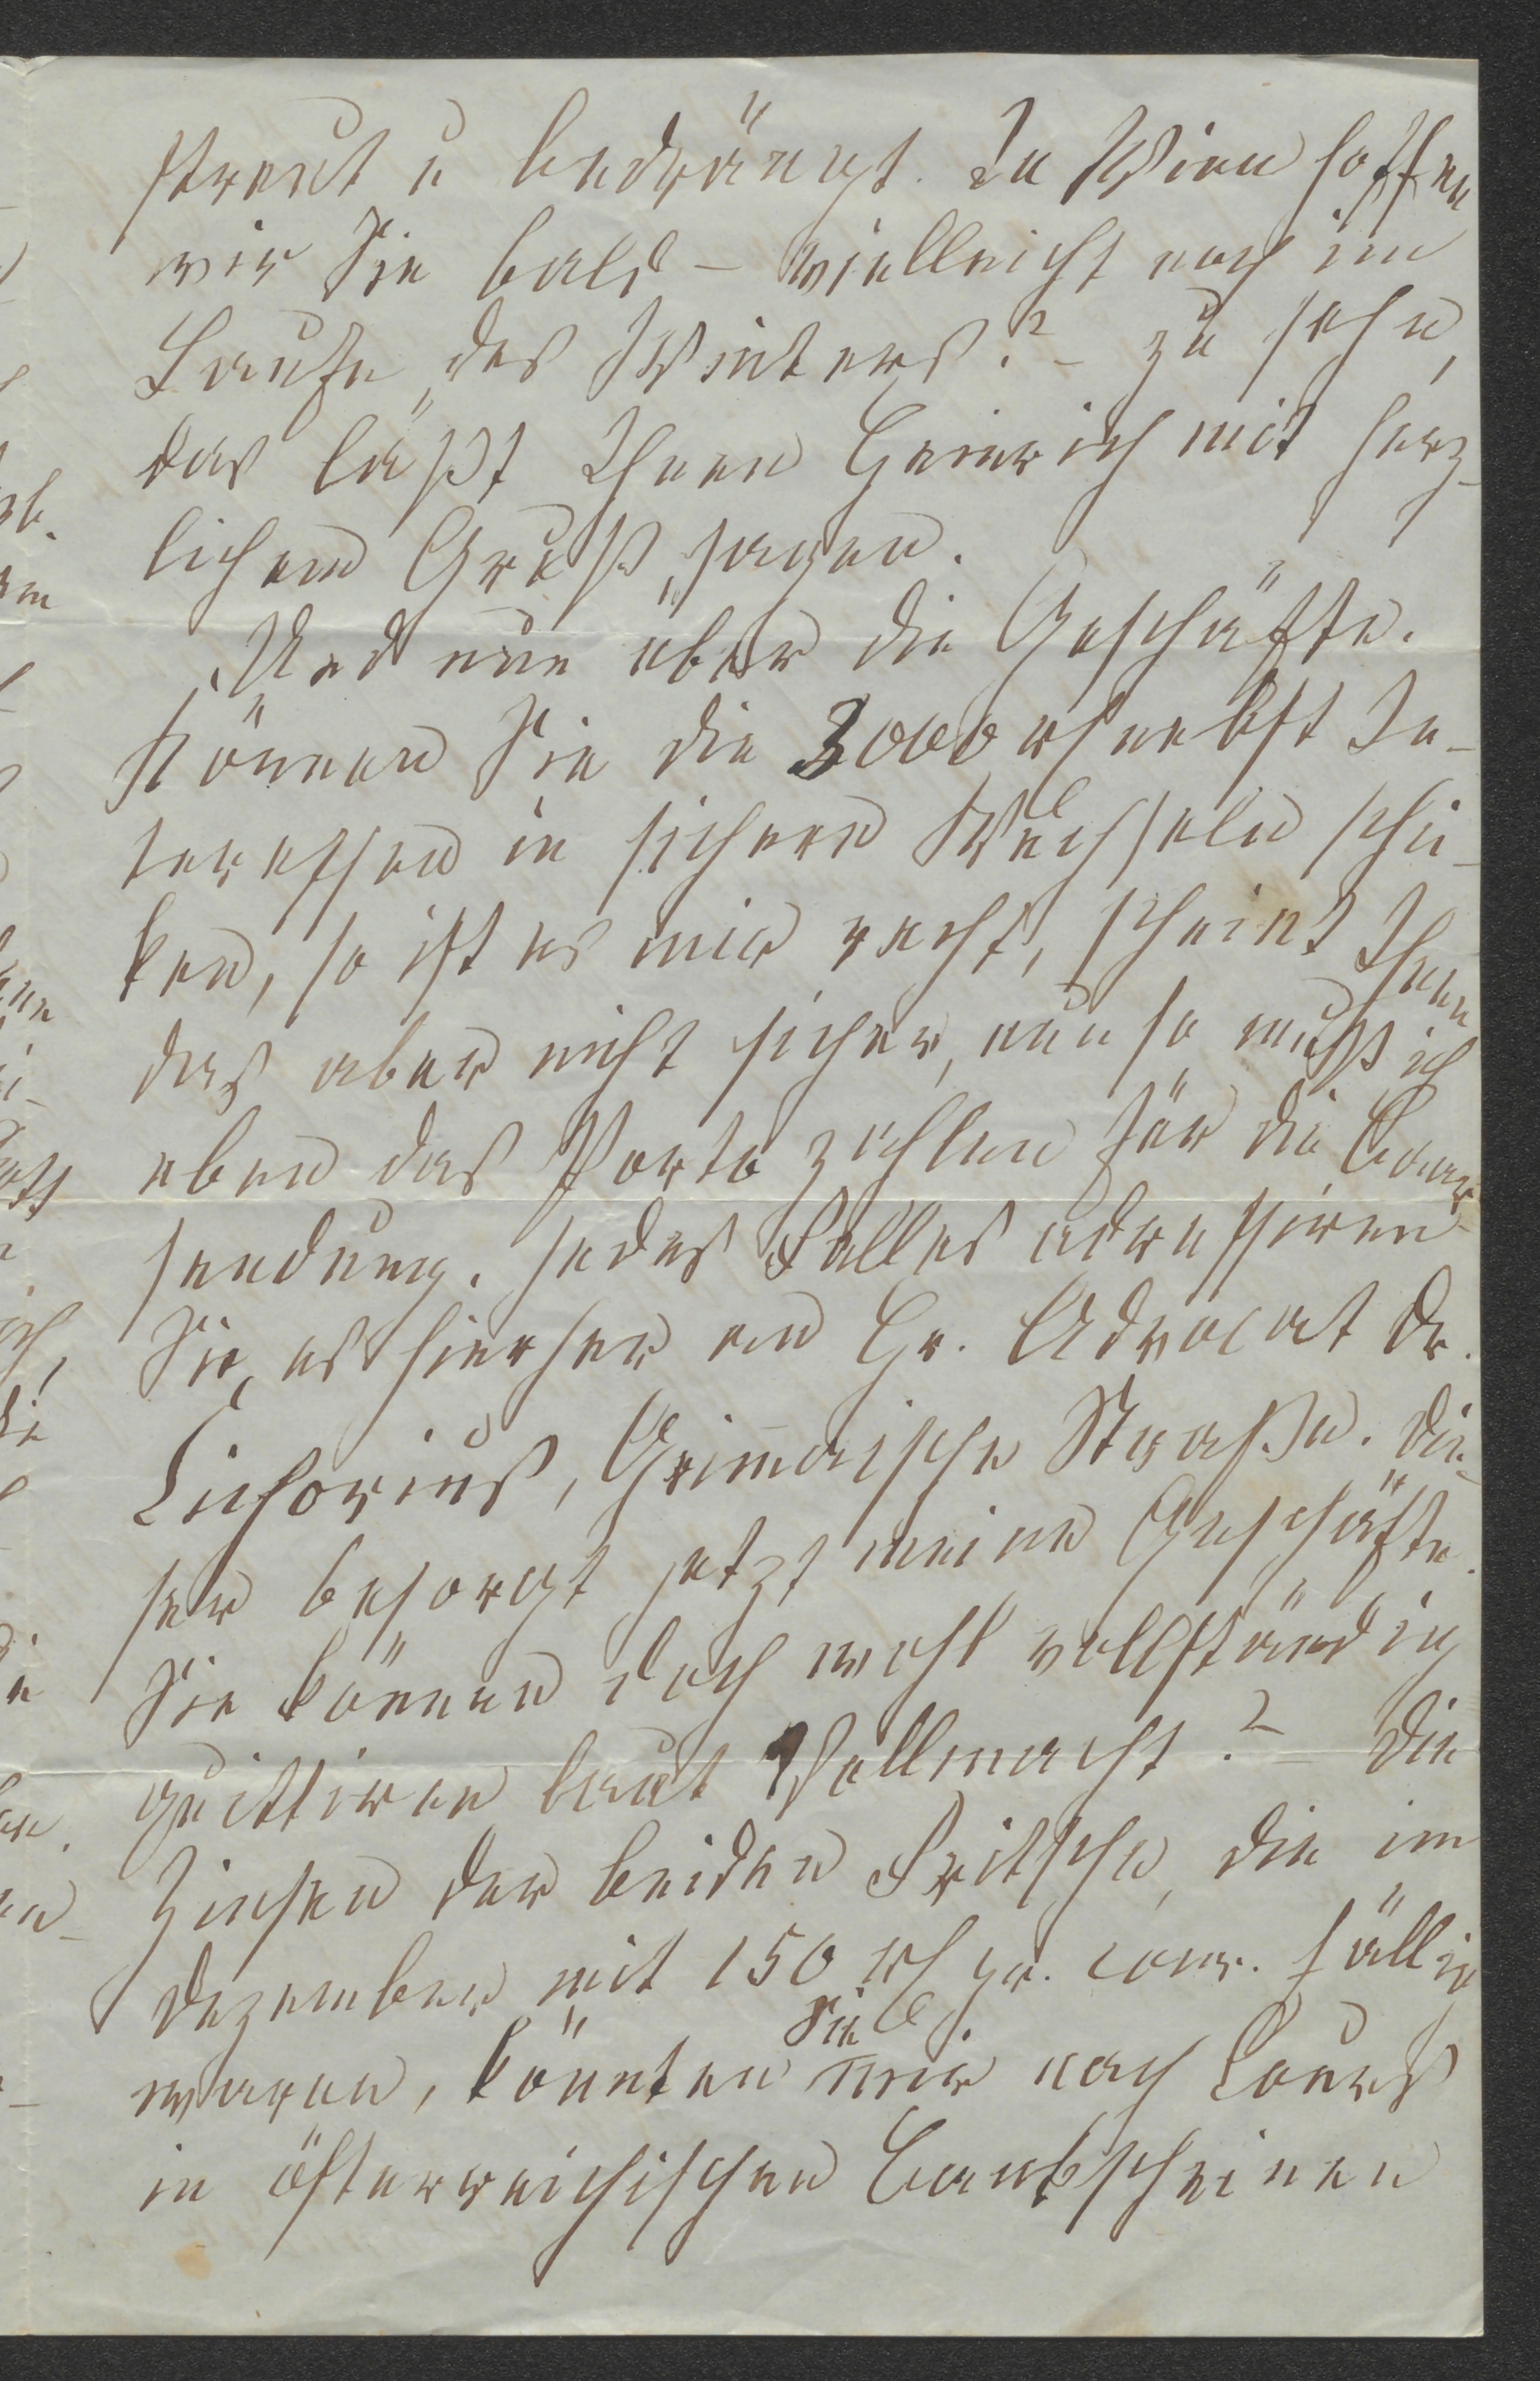 streut u bedrängt. In Wien hoffen
wir Sie bald – vielleicht noch im
Laufe des Winters? – zu sehn,
das läßt Ihnen Heinrich mit herz-
lichem Gruß sagen.
Und nun über die Geschäfte.
Können Sie die 3000 rh nebst In-
teressen in sichern Wechseln schi-
ken, so ist es mir recht, scheint Ihnen
das aber nicht sicher, nun so muß ich
eben das Porto zahlen für die Baar
sendung. Jedes Falles adressiren
Sie es hierher an Hr. Advocat Dr.
Cichorius, Grim̄aische Straße. Die-
ser besorgt jetzt meine Geschäfte.
Sie können doch wohl vollständig
quittiren laut Vollmacht? – Die
Zinsen der beiden Fritsche, die im
Dezember mit 150 rh pr. cour. fällig
waren, könnten Sie mir nach Cours
in österreichischen Bankscheinen